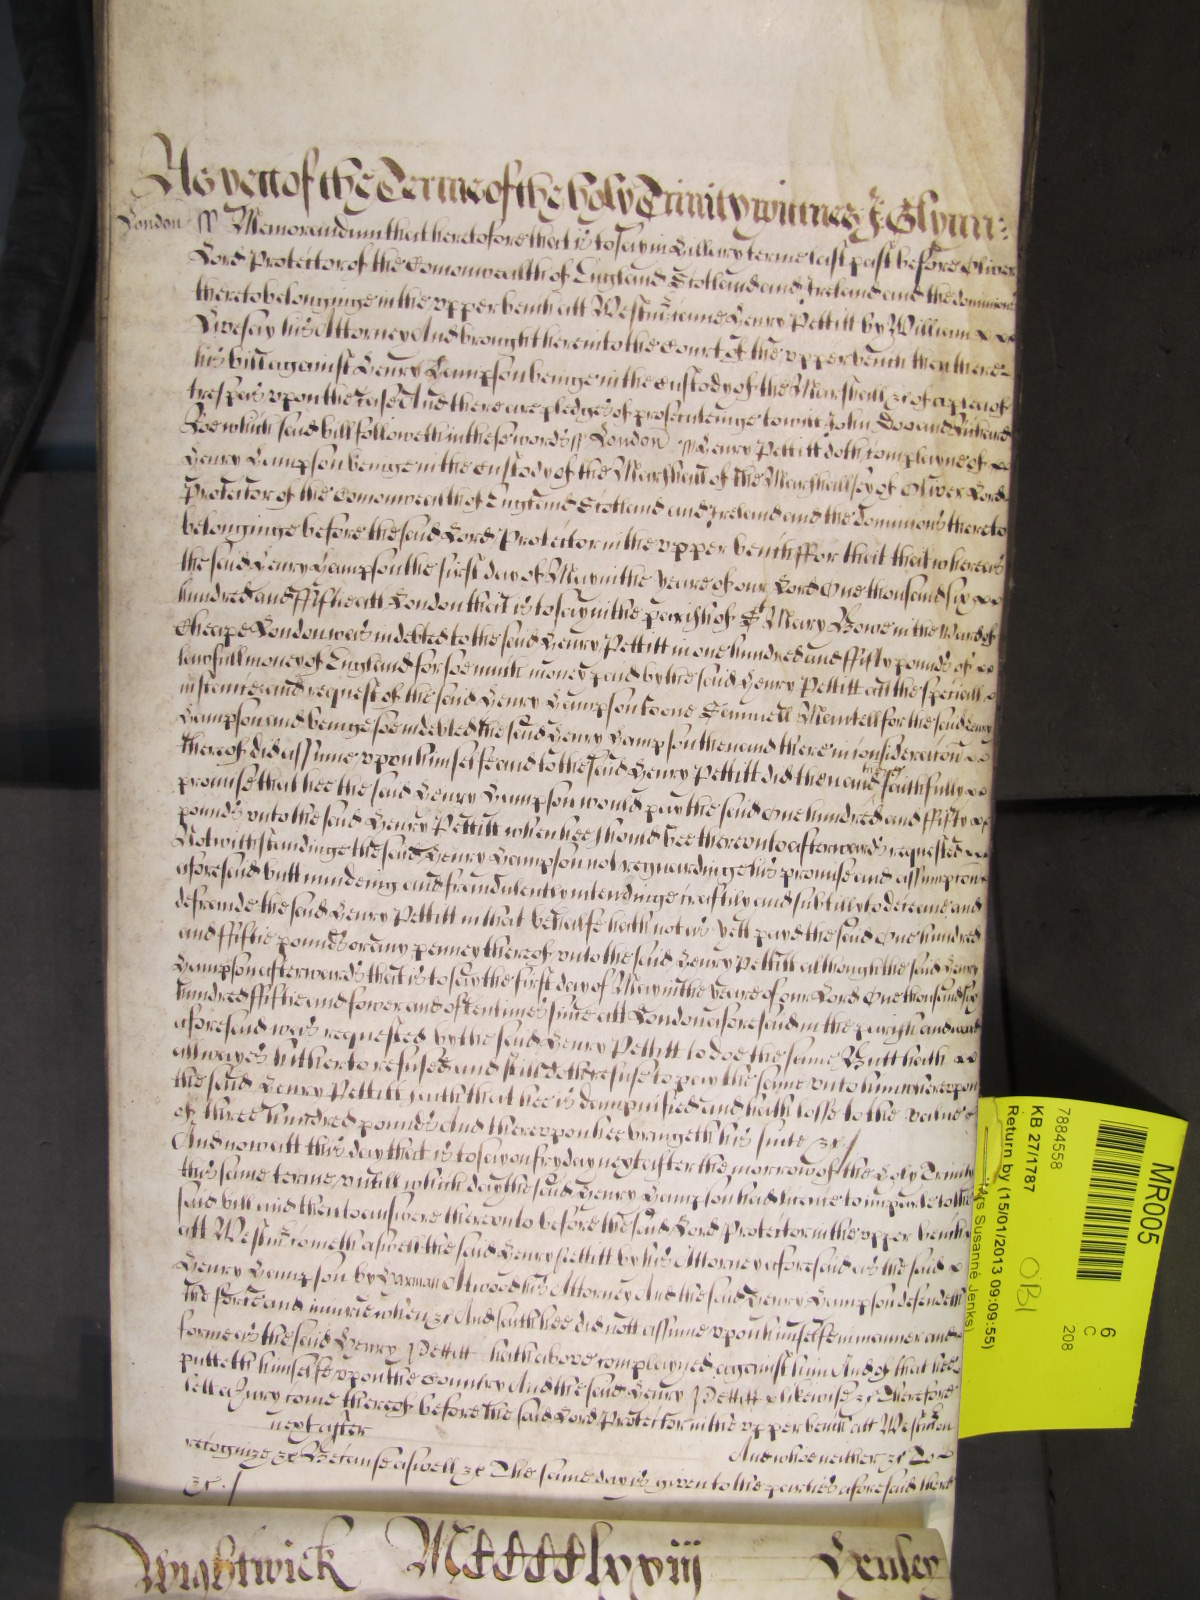 As yett of the Terme of the holy Trinity witnes J: Glynn:
London ss Memorandum that heretofore that is to say in Hillary terme last past before Oliver
Lord Protector of the Comonwealth of England Scotland and Ireland and the dominions
thereto belonginge in the upper bench att Westm came Henry Pettitt by William
Livesay his Attorney And brought here into the Court of the upper bench then there
his bill against Henry Lampson beinge in the custody of the Marshall &c of a plea of
trespas upon the case And there are pledges of prosecuteinge to wit John Doo and Richard
Roe which said bill followeth in these words ss London ss Henry Pettitt doth complayne of
Henry Lampson beinge in the custody of the Marshall of the Marshallsey of Oliver Lord
Protector of the Comonwealth of England Scotland and Ireland and the dominions thereto
belonginge before the said Lord Protector in the upper bench ffor that that whereas
the said Henry Lampson the first day of May in the yeare of our Lord One thousand six
hundred and ffiftie att London that is to say in the parish of St Mary Bowe in the Ward of
Cheape London was indebted to the said Henry Pettitt in one hundred and ffifty pounds of
lawfull money of England for soe much money paid by the said Henry Pettitt att the speciall
instance and request of the said Henry Lampson to one Samuell Mantell for the said Henry
Lampson and beinge soe indebted the said Henry Lampson then and there in consideracon
thereof did assume upon himselfe and to the said Henry Pettitt did then and there faithfully
promise that hee the said Henry Lampson would pay the said One hundred and ffifty
pounds unto the said Henry Pettitt when hee should bee thereunto afterwards requested
Notwithstandinge the said Henry Lampson not reguardinge his promise and assumpcon
aforesaid butt mindeing and fraudulently intendinge craftily and subtilly to deceave and
defraude the said Henry Pettitt in that behalfe hath not as yett payd the said One hundred
and ffiftie pounds or any penney thereof unto the said Henry Pettitt although the said Henry
Lampson afterwards that is to say the first day of May in the yeare of our Lord One thousand six
hundred ffiftie and fower and oftentimes since att London aforesaid in the parish and ward
aforesaid was requested by the said Henry Pettitt to doe the same Butt hath
allwayes hitherto refused and still doth refuse to pay the same unto him whereupon
the said Henry Pettitt saith that hee is dampnified and hath losse to the value
of three hundred pounds And thereupon hee bringeth his suite &c /
And now att this day that is to say on fryday next after the morrow of the Holy Trinity
this same terme, untill which day the said Henry Lampson had licence to imparle to the
said bill and then to answere thereunto before the said Lord Protector in the upper bench
att Westm cometh aswell the said Henry Pettitt by his Attorney aforesaid as the said
Henry Lampson by Harman Atwood his Attorney And the said Henry Lampson defendeth
the force and iniurie when &c And saith hee did nott assume upon himselfe in manner and
forme as the said Henry Pettitt hath above complayned against him And of that hee
putteth himselfe upon the Country And the said Henry Pettitt likewise &c Therefore
lett a Jury come thereof before the said Lord Protector in the upper bench att Westm on
next after And whoe neither &c To
recognize &c Because aswell &c The same day is given to the parties aforesaid there
&c. /
Wightwick MCCCClxxiij
MR005
6
C
208
7884558
KB 27/1787
OBI
Return by (15/01/2013 09:09:55)
Susanne Jenks)